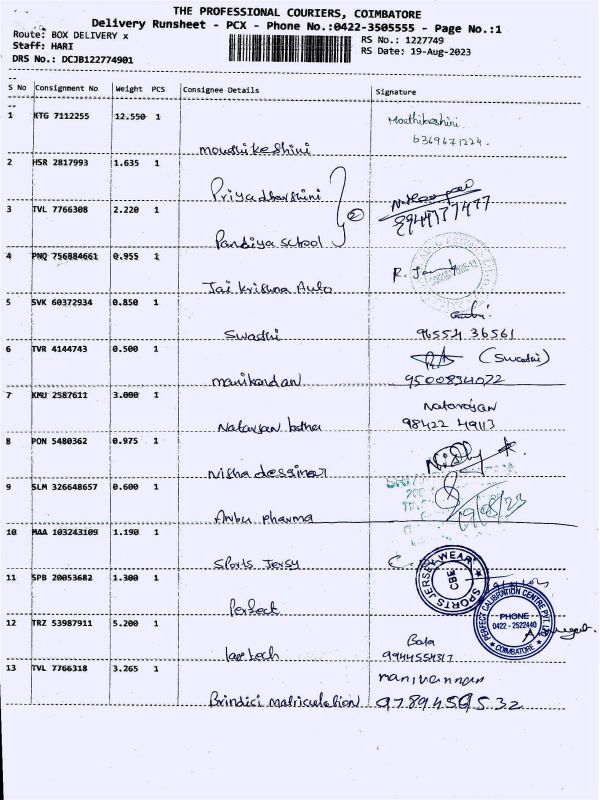 THE PROFESSIONAL COURIERS, COIMBATORE
Delivery Runsheet - PCX - Phone No.:0422-3505555 - Page No.:1
Route: BOX DELIVERY x
RS No.: 1227749
Staff: HARI
RS Date: 19-Aug-2023
DRS No.: DCJB122774901
S No Consignment No Weight PCS Consignee Details Signature
1 KTG 7112255 12.550 1
Mouthikeshini
6369671224
moushikeshini
2 HSR 2817993 1.635 1
Priyadharshini
8944777477
3 TVL 7766308 2.220 1
2
Pandiya school
4 PNQ 756884661 0.955 1
R.
Jai Krishna Auto
5 SVK 60372934 0.850 1
Swathi
96554 36561
6 TVR 4144743 0.500 1
(Swathi)
manikandan
9500834022
7 KMU 2587611 3.000 1
Natarajan
Natarajan
98422 49113
8 PON 5480362 0.975 1
Nisha dessinar
9 SLM 326648657 0.600 1
19/08/23
Anbu pharma
10 MAA 103243109 1.190 1
Sports Jersy
SPORTS JERSEY WEAR
CBE
11 SPB 20053682 1.300 1
Perfect
PERFECT CALIBRATION CENTRE PVT LTD
PHONE
0422 - 2522440
COIMBATORE
12 TRZ 53987911 5.200 1
Bala
laptech
9944554317
13 TVL 7766318 3.265 1
manivannan
Brindici matriculation
9789456532